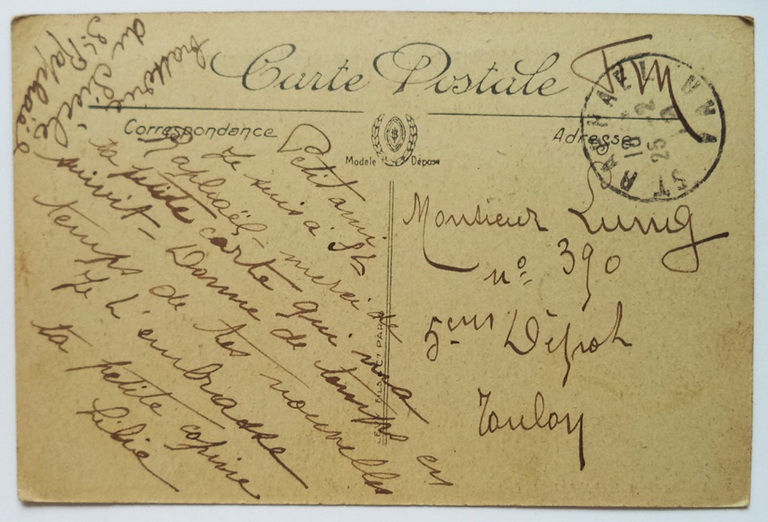 Carte Postale
Correspondance
Adresse
Modèle Déposé
FM
ST RAPHAEL
18
25
Petit ami,
Je suis à St
Raphaël, merci de
ta petite carte qui m'a
suivit - Donne de temps en
temps de tes nouvelles
Je t'embrasse
ta petite copine
Lilie
St Raphaël
Monsieur Lunig
n° 390
5ème Dépôt
Toulon